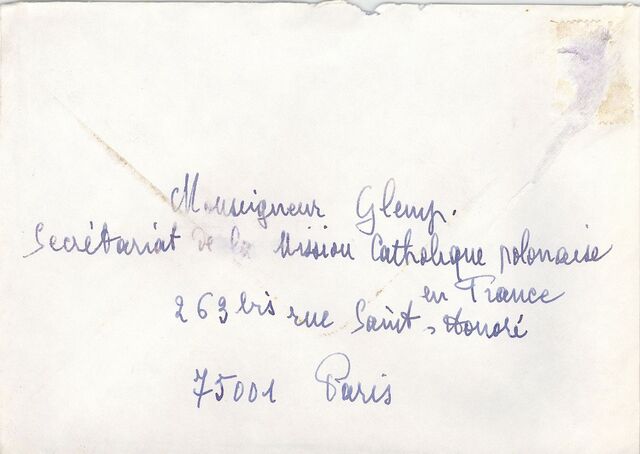 Monseigneur Glemp.
Secrétariat de la Mission Catholique polonaise
en France
263 bis rue Saint-Honoré
75001 Paris